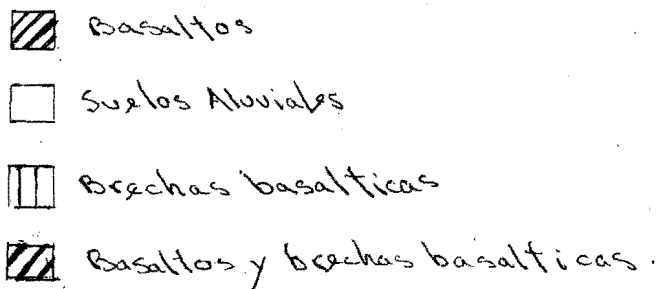 Basaltos
Suelos Aluviales
Brechas basalticas
Basaltos y brechas basalticas.